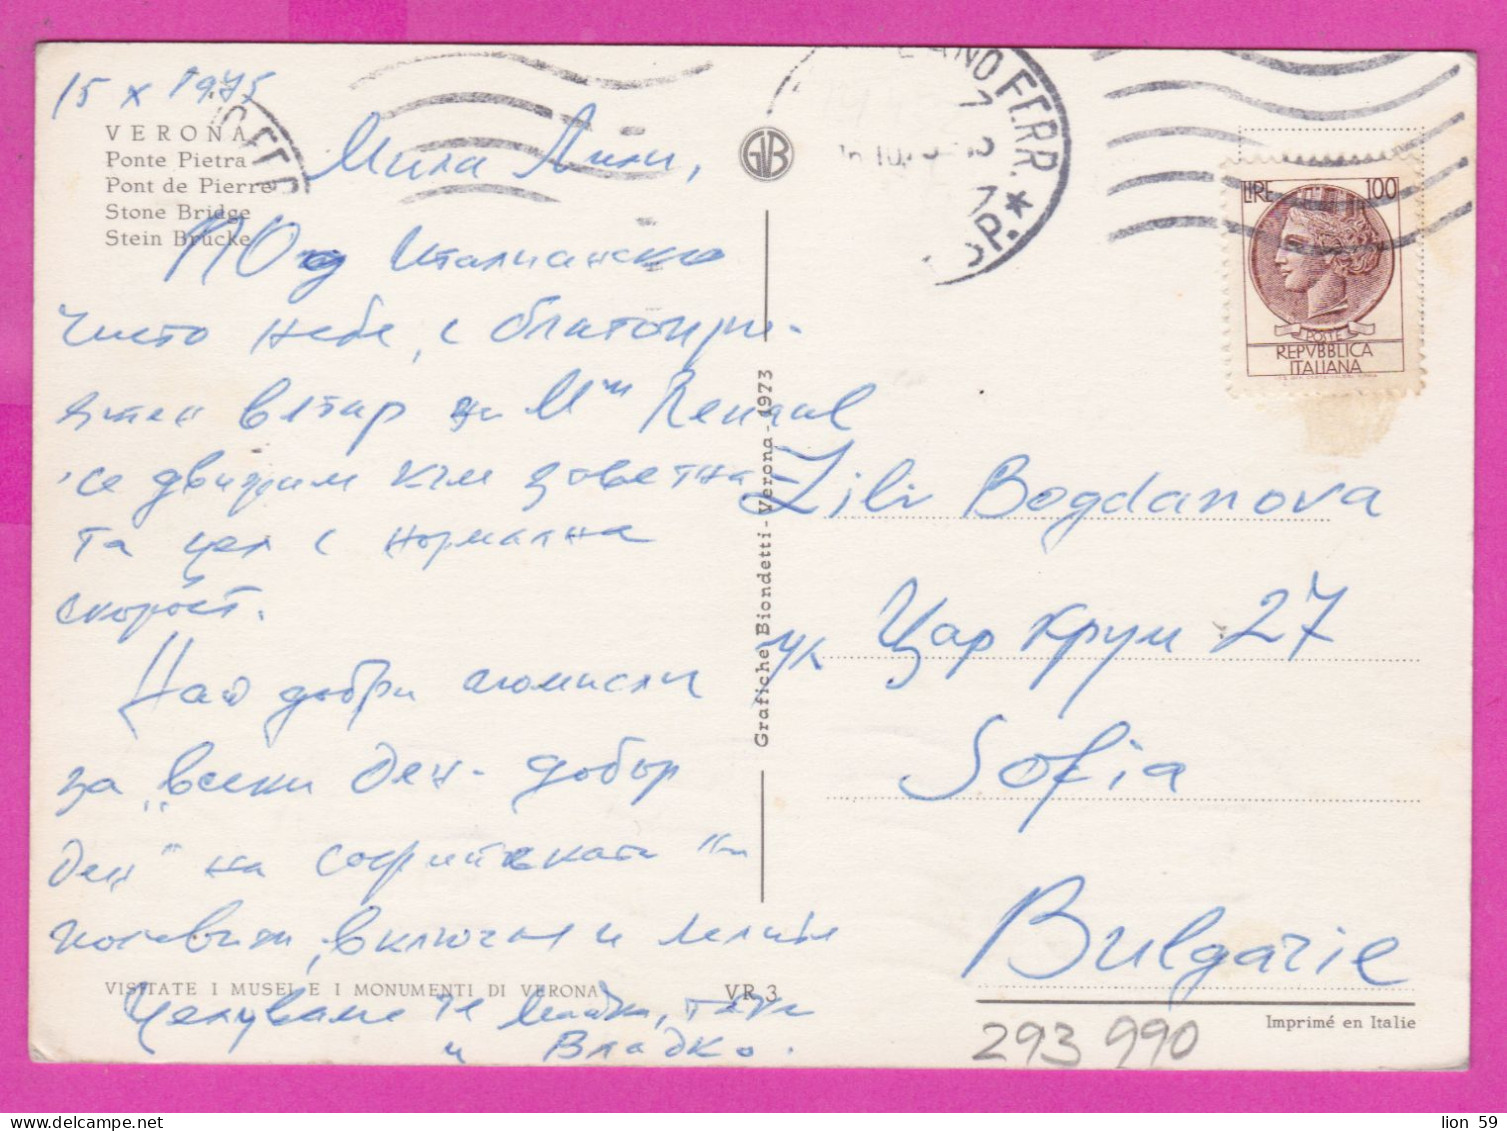 15 X 1975
VERONA
Ponte Pietra
Pont de Pierre
Stone Bridge
Stein Brücke
Мила Лили,
Под Италианско
чисто небе, с благопри-
ятен вятър на
се движим към заветна
та цел с нормална
скорост.
Най добри помисли
за „всеки ден - добър
ден" на софийската
включая и
Целуваме те Майка, тати
и Владко.
VISITATE I MUSEI E I MONUMENTI DI VERONA
VR 3
GVB
Grafiche Biondetti - Verona - 1973
ANO FERR.
LIRE 100
POSTE
REPVBBLICA
ITALIANA
Lili Bogdanova
ук Цар Крум 27
Sofia
Bulgarie
Imprimé en Italie
293 990
lion 59